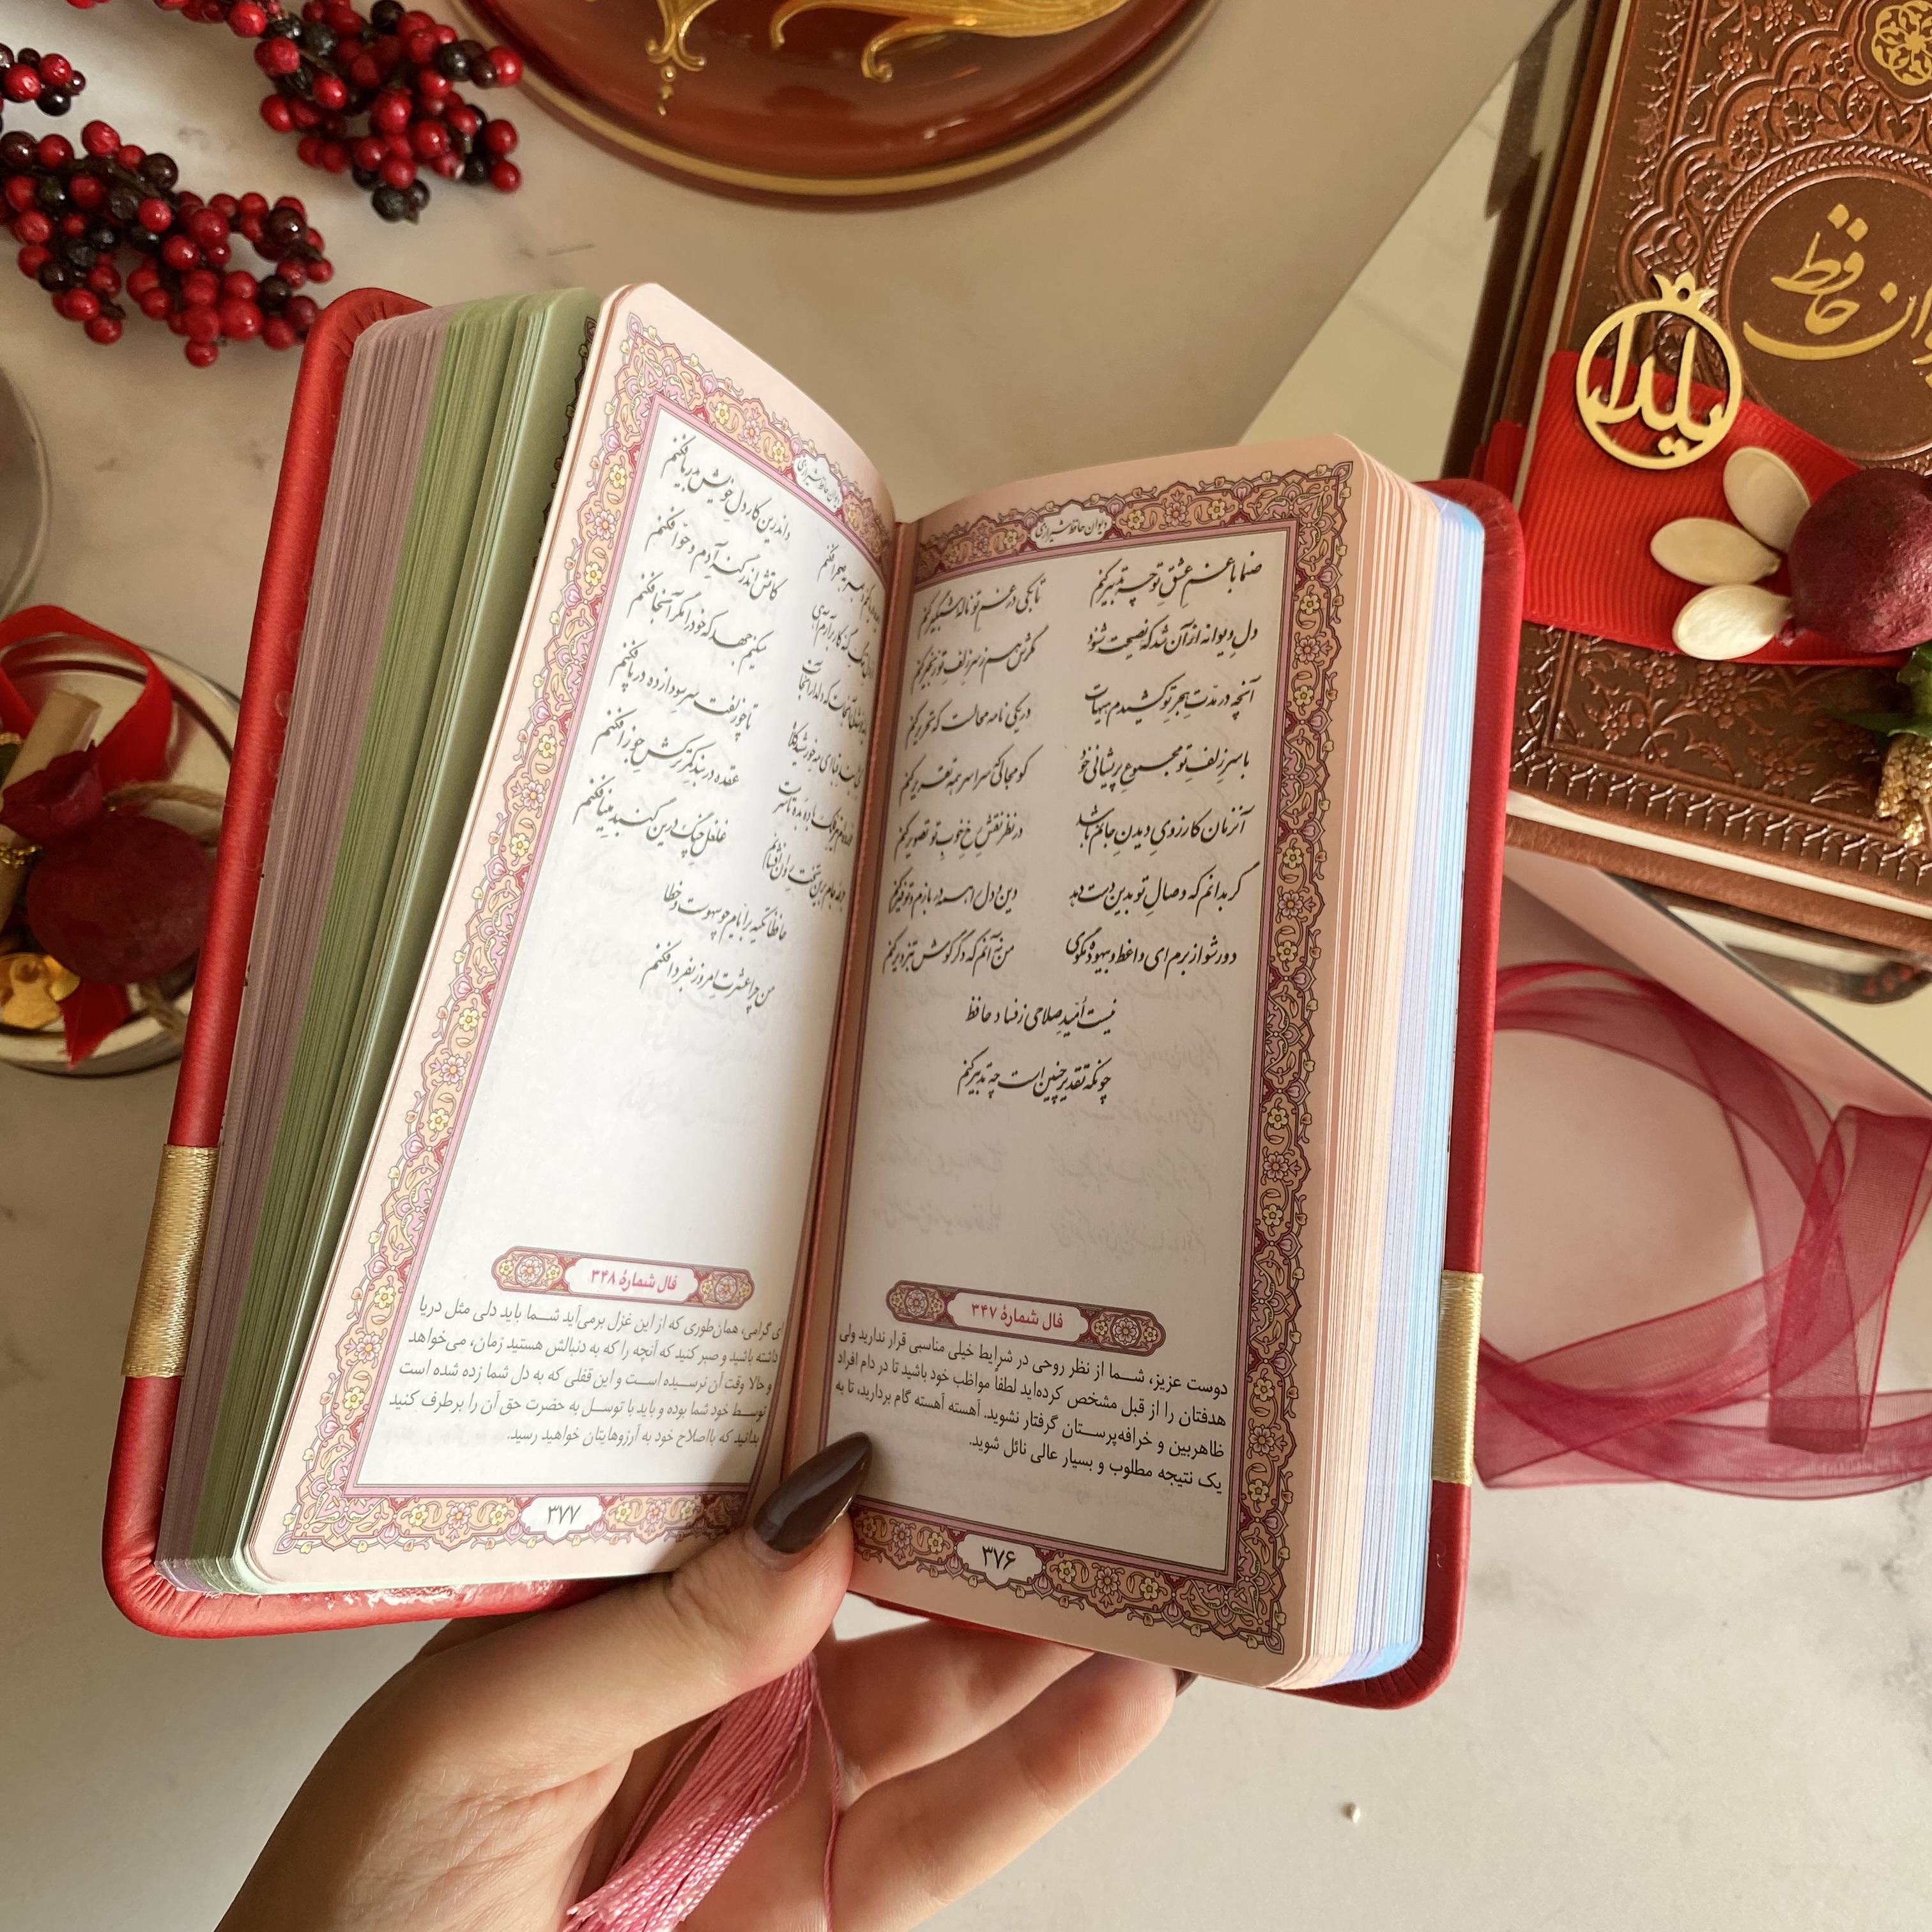 دیوان حافظ شیرازی
صنما با غم عشق تو چه تدبیر کنم
تا بکی در غم تو ناله شبگیر کنم
دل دیوانه از آن شد که نصیحت شنود
مگرش هم ز سر زلف تو زنجیر کنم
آنچه در مدت هجر تو کشیدم هیهات
در یکی نامه محالست که تحریر کنم
با سر زلف تو مجموع پریشانی خود
کو مجالی که سراسر همه تقریر کنم
آنزمان کارزوی دیدن جانم باشد
در نظر نقش رخ خوب تو تصویر کنم
گر بدانم که وصال تو بدین دست دهد
دین و دل را همه در بازم و توفیر کنم
دور شو از برم ای واعظ و بیهوده مگوی
من نه آنم که دگر گوش بتزویر کنم
نیست امید صلاحی ز فساد حافظ
چونکه تقدیر چنین است چه تدبیر کنم
فال شمارهٔ ۳۴۷
دوست عزیز، شما از نظر روحی در شرایط خیلی مناسبی قرار ندارید ولی
هدفتان را از قبل مشخص کرده‌اید لطفاً مواظب خود باشید تا در دام افراد
ظاهربین و خرافه‌پرستان گرفتار نشوید. آهسته آهسته گام بردارید، تا به
یک نتیجه مطلوب و بسیار عالی نائل شوید.
۳۷۶
دیوان حافظ شیرازی
واندرین کار دل خویش بدریا فکنم
کاتش اندر گنه آدم و حوا فکنم
میکنم جهد که خود را مگر آنجا فکنم
تا چو زلفت سر سودازده در پا فکنم
عقده در بند کمر ترکش جوزا فکنم
غلغل چنگ درین گنبد مینا فکنم
حافظا تکیه بر ایام چو سهوست و خطا
من چرا عشرت امروز بفردا فکنم
فال شمارهٔ ۳۴۸
ای گرامی، همان‌طوری که از این غزل برمی‌آید شما باید دلی مثل دریا
داشته باشید و صبر کنید که آنچه را که به دنبالش هستید زمان، می‌خواهد
و حالا وقت آن نرسیده است و این قفلی که به دل شما زده شده است
توسط خود شما بوده و باید با توسل به حضرت حق آن را برطرف کنید
بدانید که بااصلاح خود به آرزوهایتان خواهید رسید.
۳۷۷
حافظ
یلدا